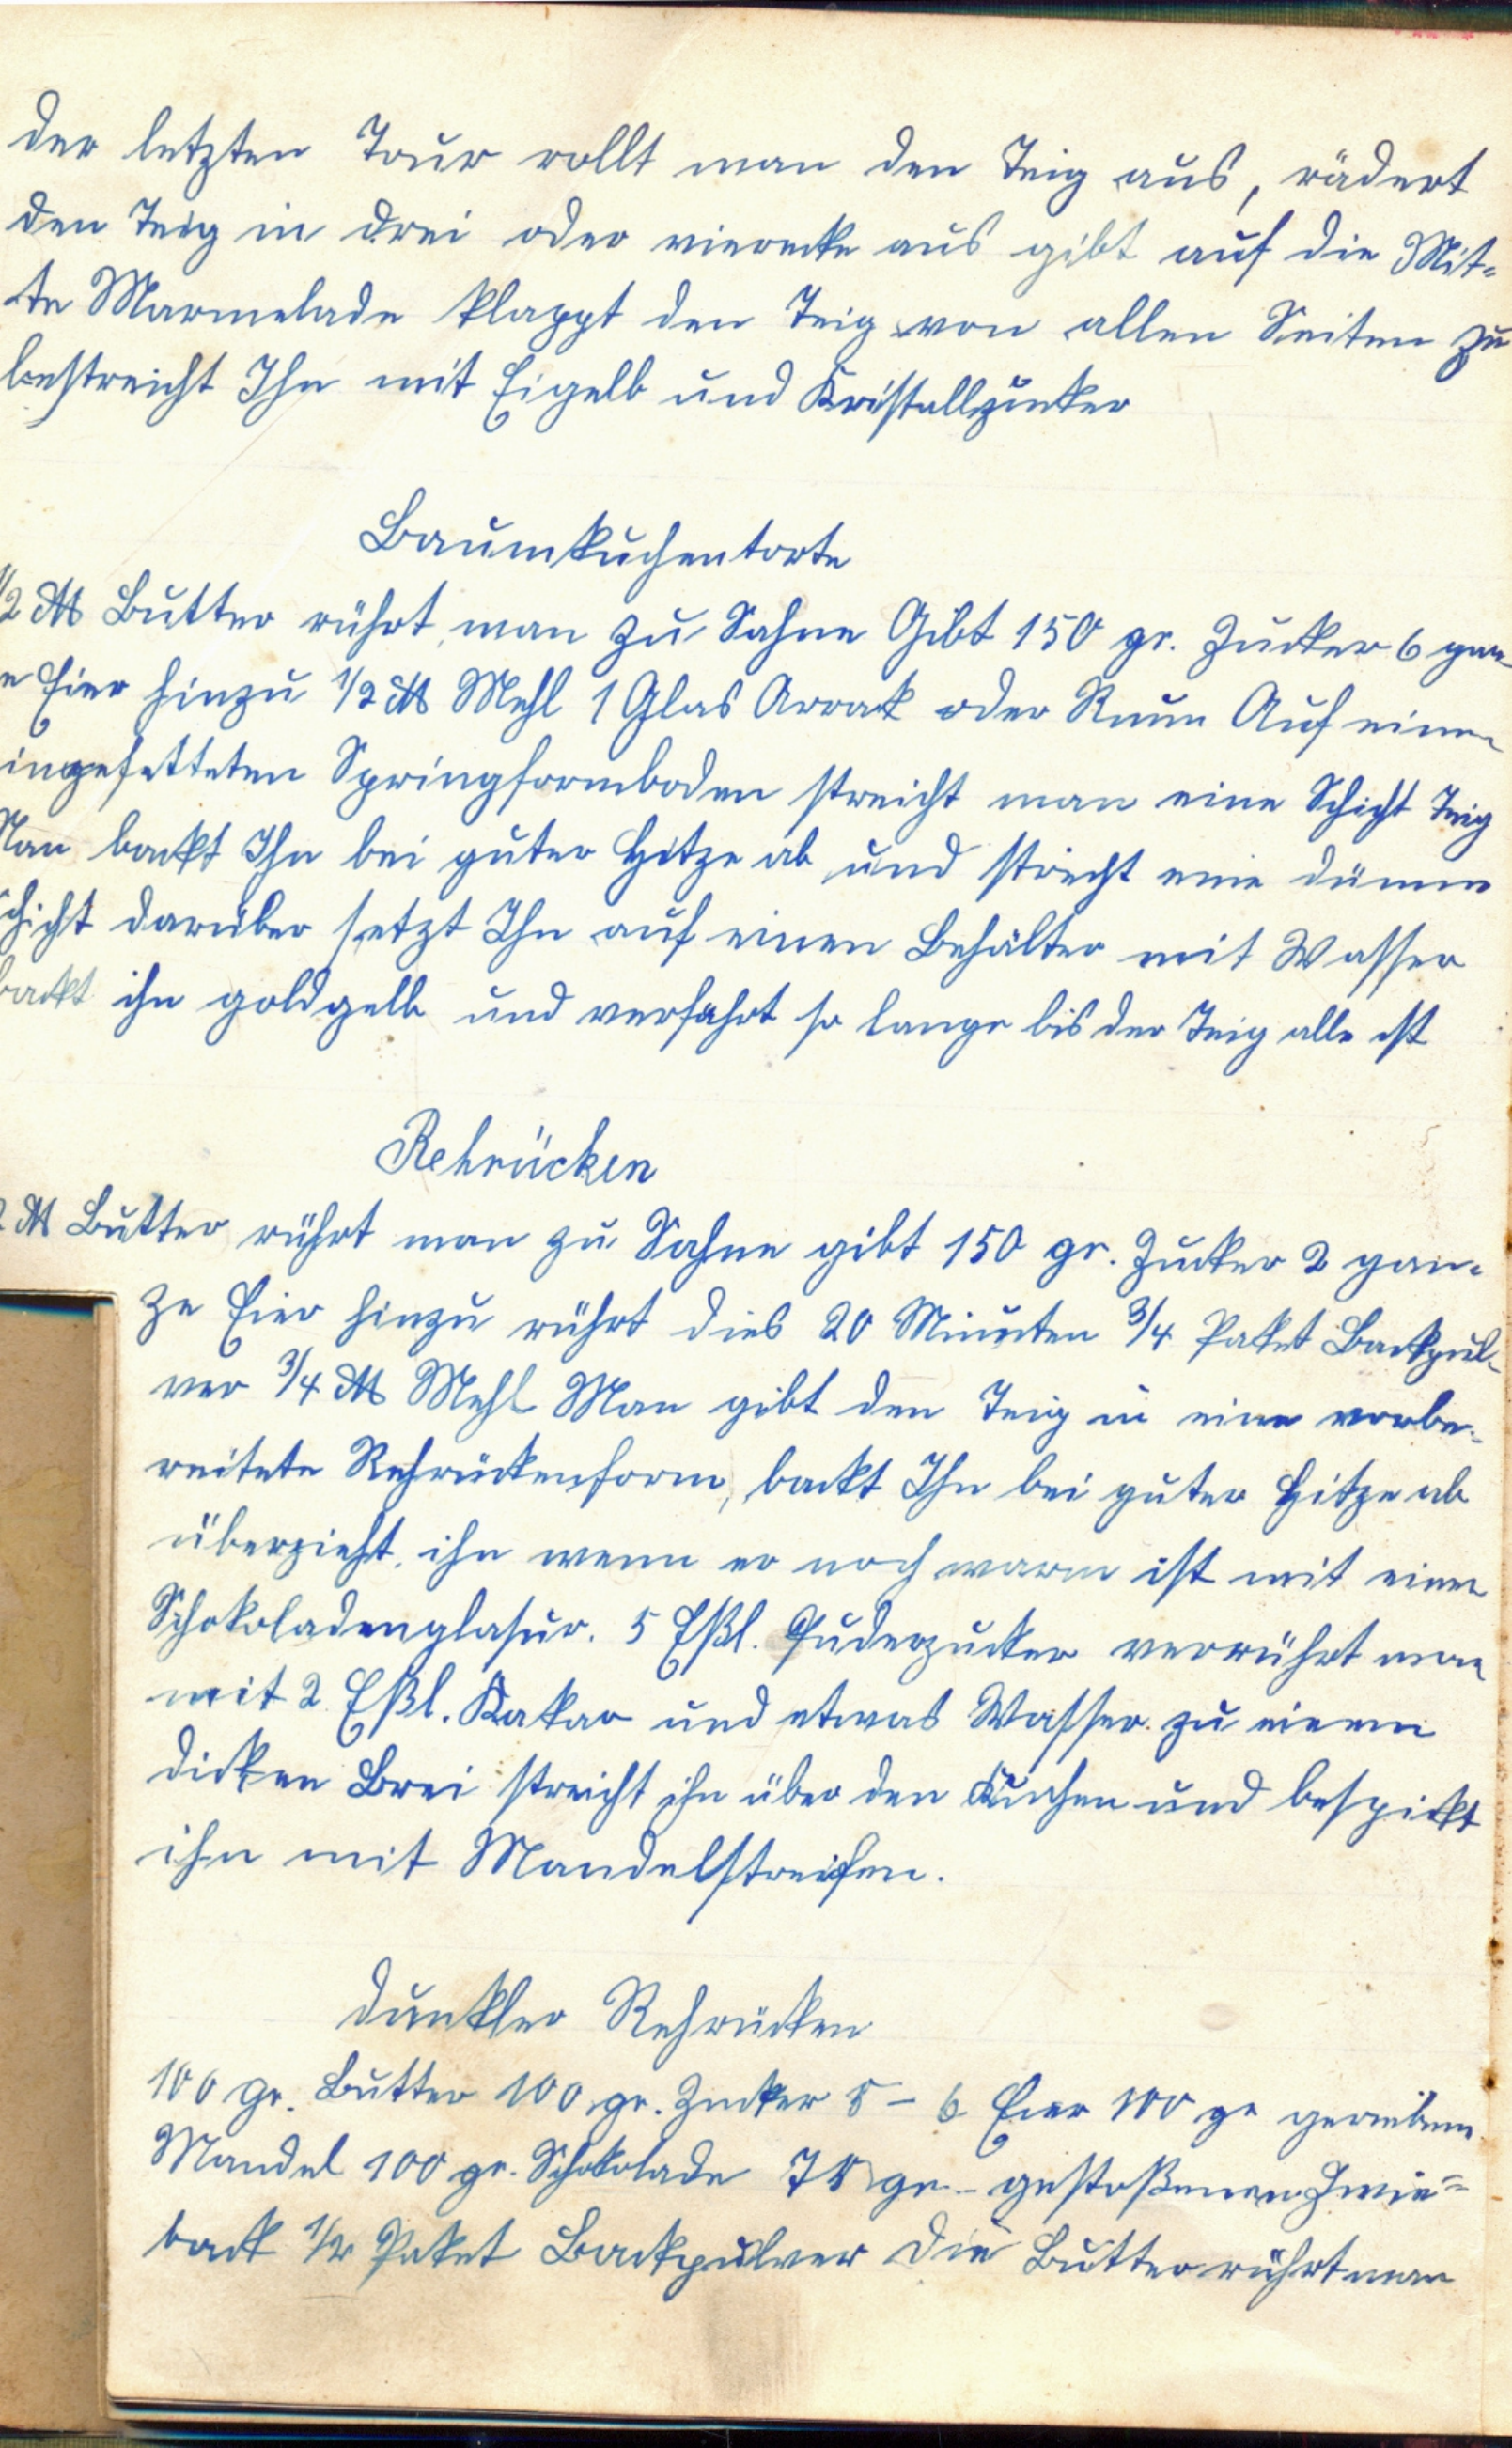 der letzten Tour rollt man den Teig aus, rädert
den Teig in drei oder vierecke aus gibt auf die Mit-
te Marmelade klappt den Teig von allen Seiten zu
bestreicht Ihn mit Eigelb und Kristallzucker
Baumkuchentorte
1/2 ℔ Butter rührt man zu Sahne Gibt 150 gr. Zucker 6 gan-
e Eier hinzu 1/2 ℔ Mehl 1 Glas Arrak oder Rum Auf einen
ingefetteten Springformboden streicht man eine Schicht Teig
Man backt Ihn bei guter Hitze ab und streicht eine dünne
chicht darüber setzt Ihn auf einen Behälter mit Wasser
backt ihn goldgelb und verfährt so lange bis der Teig alle ist
Rehrücken
2 ℔ Butter rührt man zu Sahne gibt 150 gr. Zucker 2 gan-
ze Eier hinzu rührt dies 20 Minuten 3/4 Paket Backpul-
ver 3/4 ℔ Mehl Man gibt den Teig in eine vorbe-
reitete Rehrückenform, backt Ihn bei guter Hitze ab
überzieht ihn wenn er noch warm ist mit einer
Schokoladenglasur. 5 Eßl. Puderzucker verrührt man
mit 2 Eßl. Kakao und etwas Wasser zu einem
dicken Brei streicht ihn über den Kuchen und bespickt
ihn mit Mandelstreifen.
Dunkler Rehrücken
100 gr. Butter 100 gr. Zucker 5 - 6 Eier 100 gr geriebene
Mandel 100 gr. Schokolade 75 gr gestoßenen Zwie=
back 1/2 Paket Backpulver Die Butter rührt man